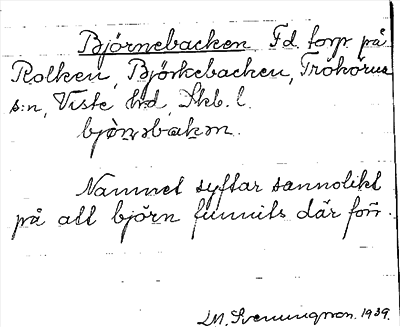 Björnebacken Fd. torp på
Rolken, Björkebacken, Trökörna
s:n, Viste hd, Skb. l.
bjö̀ṇəbàkən.
Namnet syftar sannolikt
på att björn funnits där förr.
LM. Svenungsson. 1939.